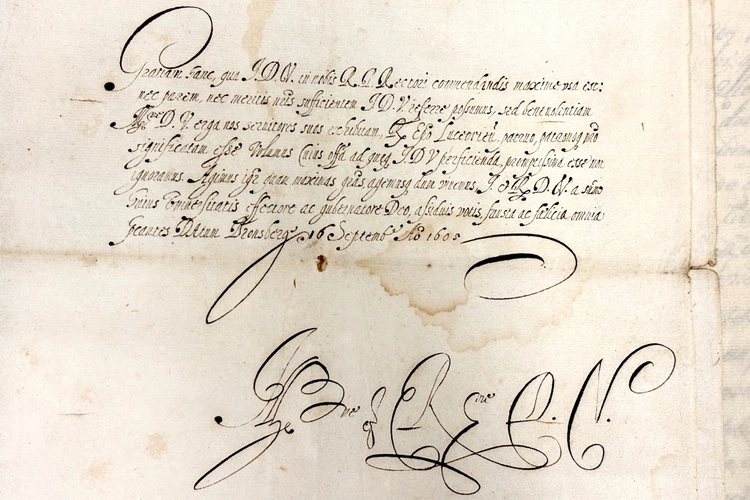 Gratiam hanc, qua I. D. V. in nobis R. P. Rectori commendandis maxime usa est:
nec parem, nec meritis nris sufficientem I D V referre possumus, sed benevolentiam
D. V. erga nos servitores suos exhibitam, Luceorien, patruo, patronoq nro
significatam esse volumus Cuius offa ad quaeq I D V perficienda, promptissima esse non
ignoramus. Agimus igr quam maximas gras, agemusq dum vivemus, D. V. a sumo
huius Universitatis effectore ac gubernatore Deo, assiduis votis, fausta ac felicia omnia
pcantes Datum Bronsbergae 16 Septemb Ao 1605